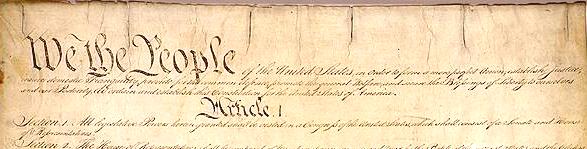 We the People of the United States, in Order to form a more perfect Union, establish Justice,
insure domestic Tranquility, provide for the common defence, promote the general Welfare, and secure the Blessings of Liberty to ourselves
and our Posterity, do ordain and establish this Constitution for the United States of America.
Article. I.
Section. 1. All legislative Powers herein granted shall be vested in a Congress of the United States, which shall consist of a Senate and House
of Representatives.
Section. 2. The House of Representatives shall be